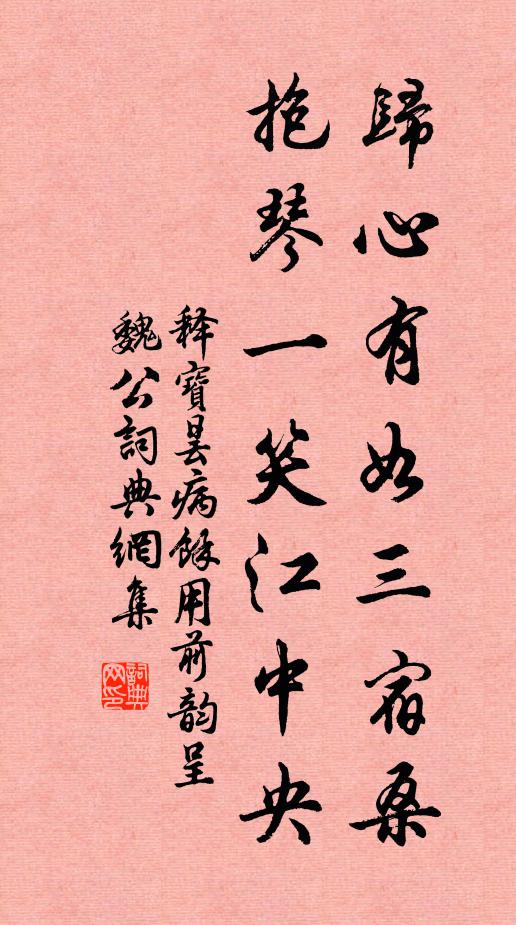 歸心有如三宿桑
抱琴一笑江中央
釋寶曇病餘用前韵呈
魏公詞典網集
詞典
网印